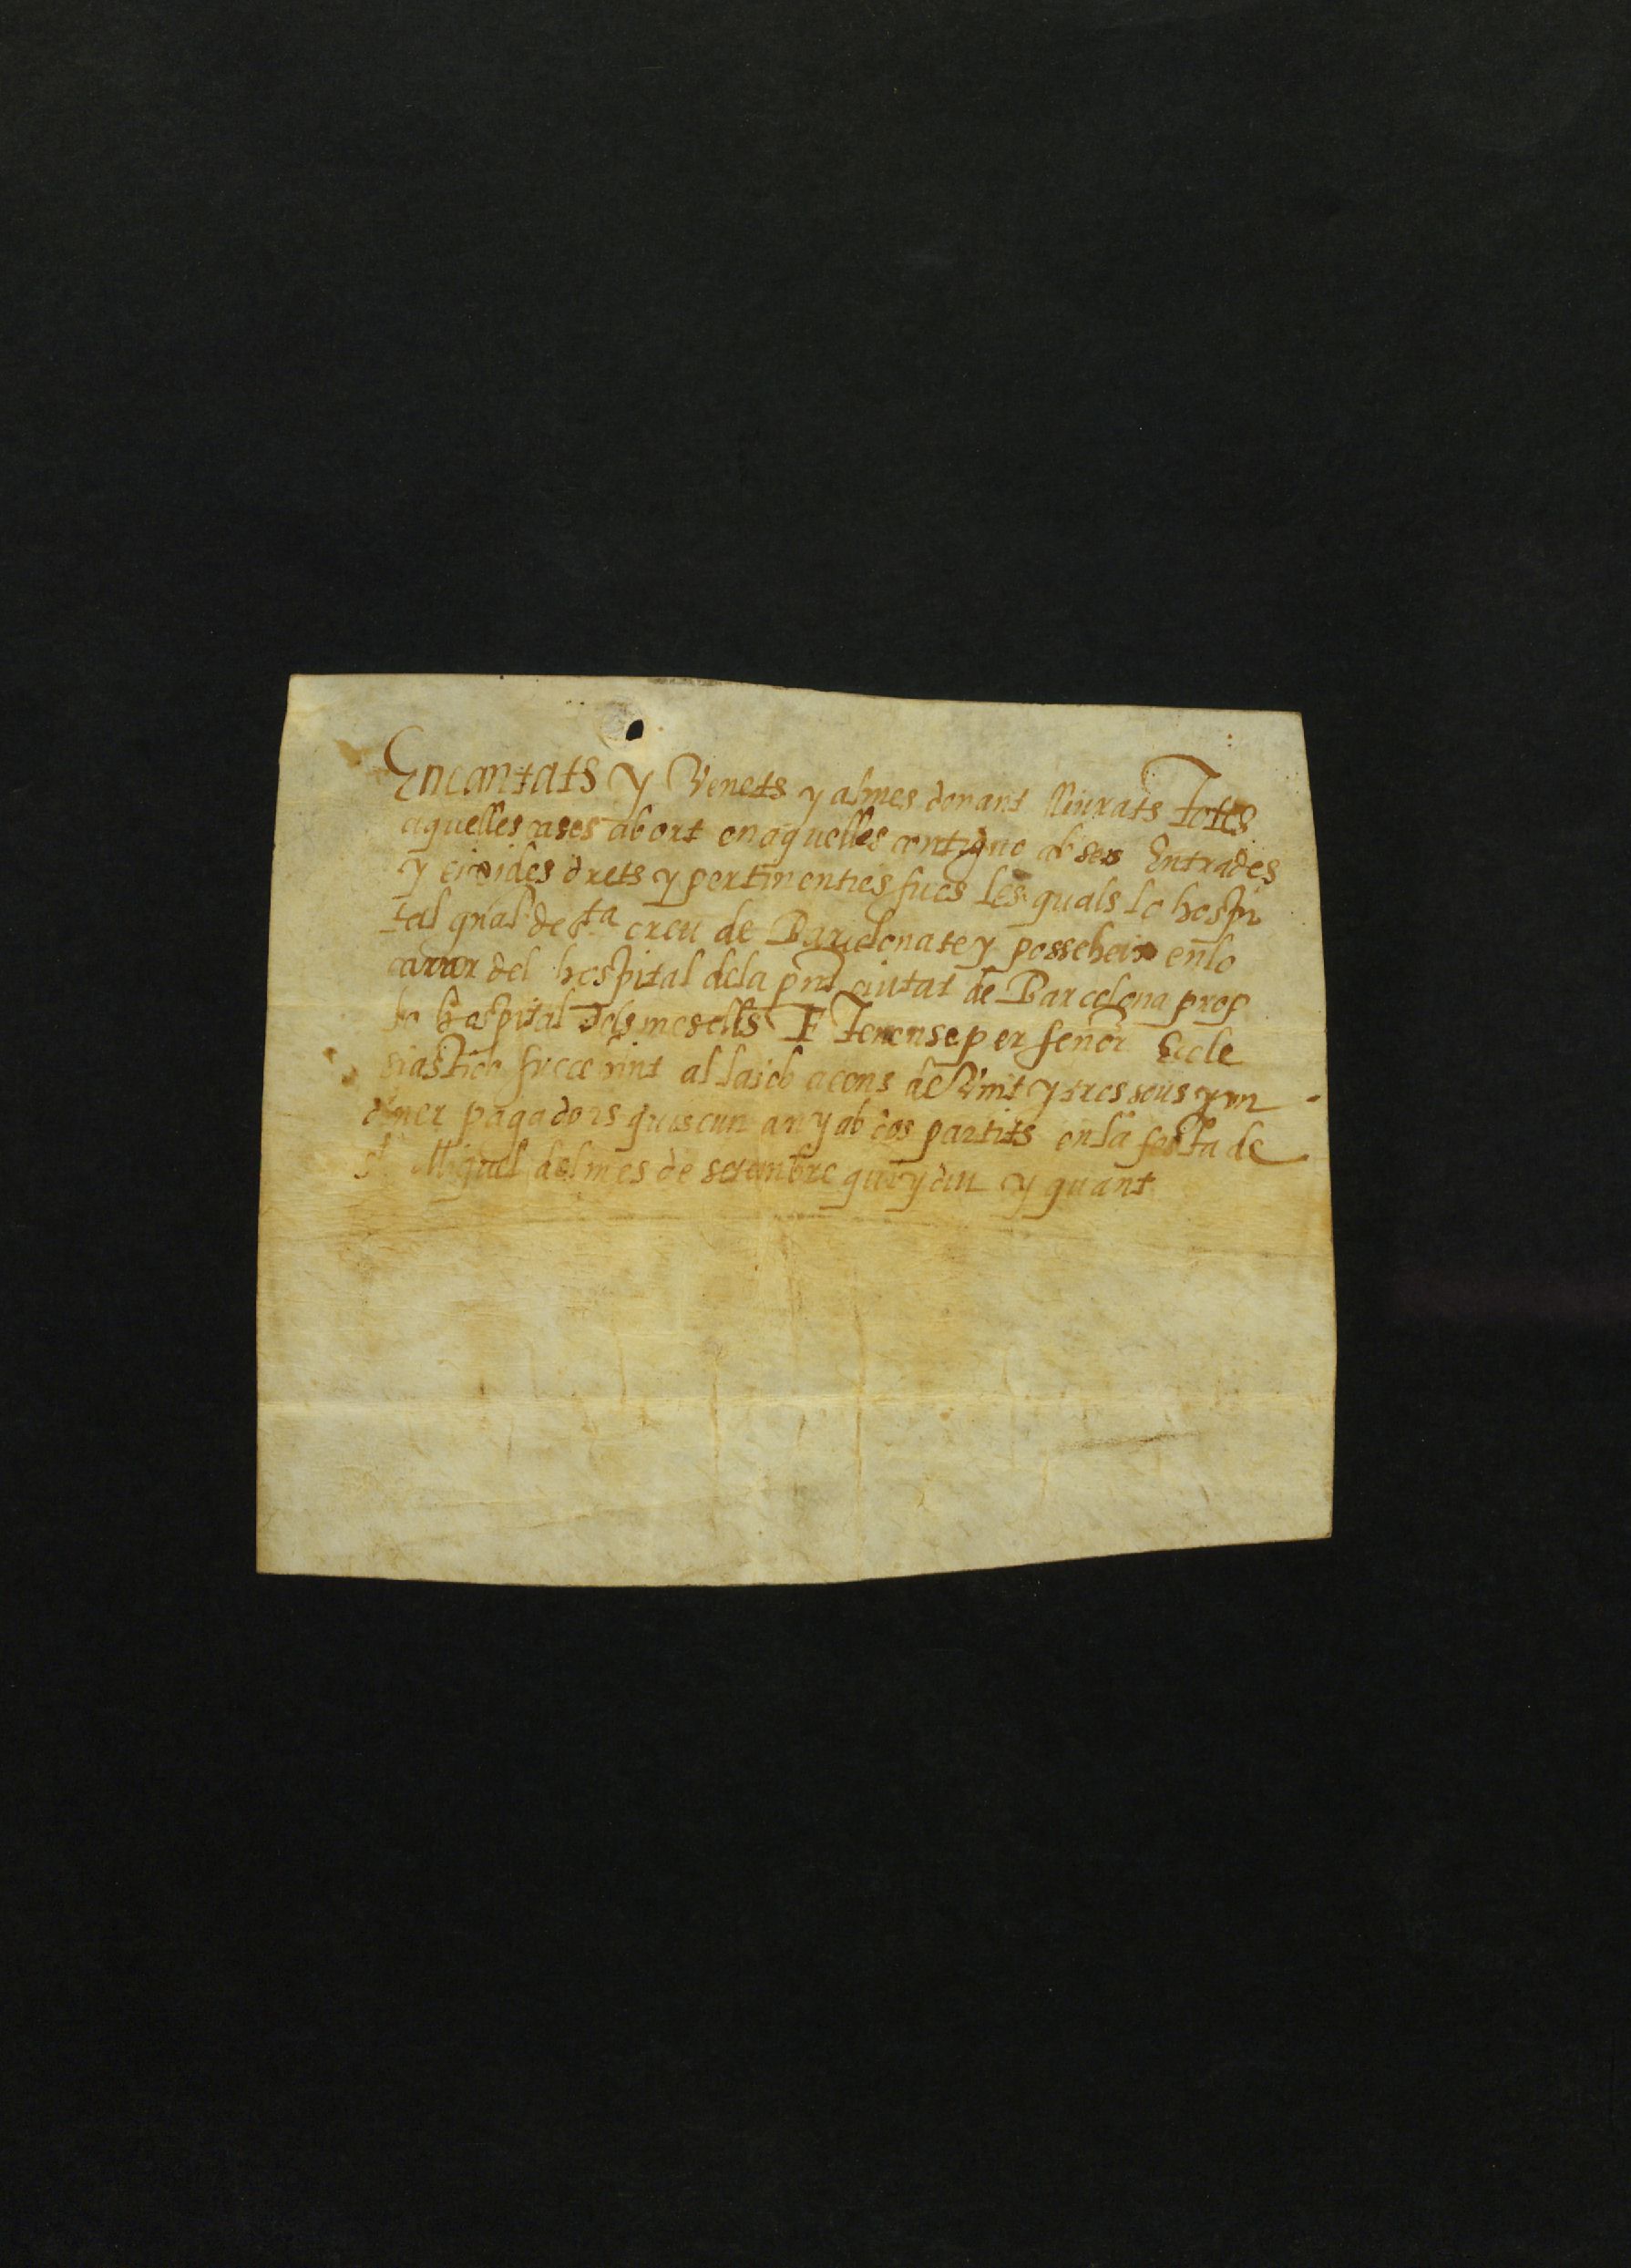 Encantats y Venets y al mes donant lliurats Totes
aquelles cases ab ort en aquelles contiguo ab ses Entrades
y eixides drets y pertinenties sues les quals lo hospi
tal gñal de sta creu de Barcelona te y posseheix en lo
carrer del hospital dela pnt ciutat de Barcelona prop
lo hospital dels mesells E Tenense per señor Ecle
siastich succehint al laich a cens de Vint y tres sous y un
diner pagadors quiscun any ab dos partits en la festa de
st Miquel del mes de setembre qui y diu y quant